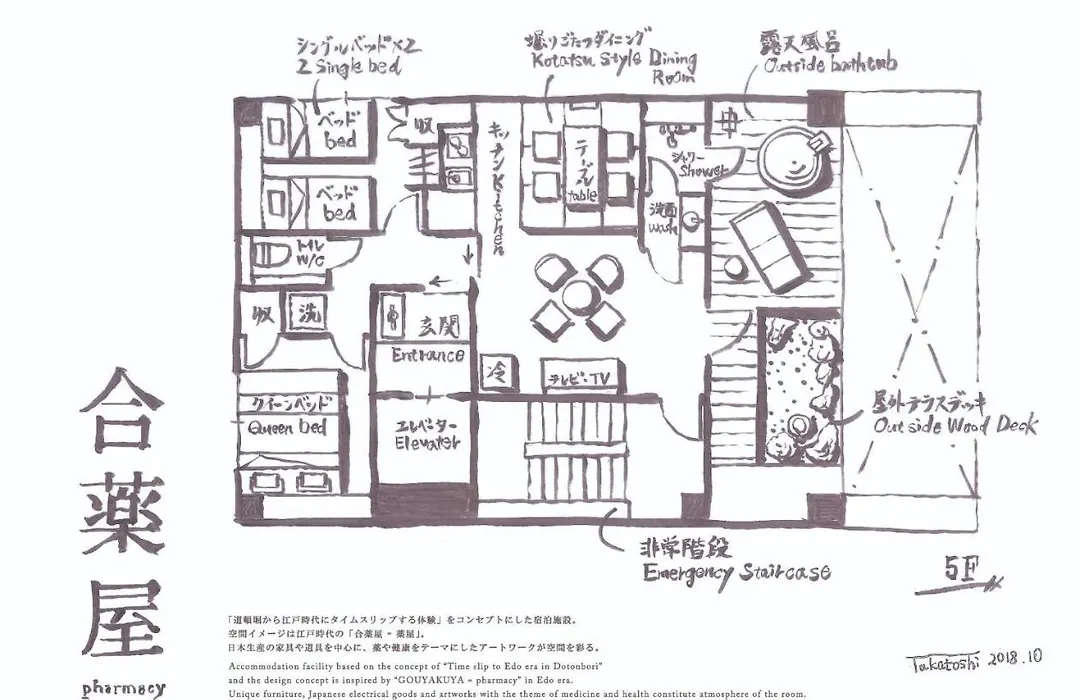 シングルベッド×2
2 Single bed
掘りごたつダイニング
Kotatsu Style Dining
Room
露天風呂
Outside bathtub
ベッド
bed
収
キッチン Kitchen
テーブル
table
シャワー
Shower
ベッド
bed
洗面
wash
トイレ
W/C
収
洗
玄関
Entrance
冷
テレビ・TV
クイーンベッド
Queen bed
エレベーター
Elevator
屋外テラスデッキ
Outside Wood Deck
非常階段
Emergency Staircase
5F
合薬屋
pharmacy
「道頓堀から江戸時代にタイムスリップする体験」をコンセプトにした宿泊施設。
空間イメージは江戸時代の「合薬屋 = 薬屋」。
日本生産の家具や道具を中心に、薬や健康をテーマにしたアートワークが空間を彩る。
Accommodation facility based on the concept of “Time slip to Edo era in Dotonbori”
and the design concept is inspired by “GOUYAKUYA = pharmacy” in Edo era.
Unique furniture, Japanese electrical goods and artworks with the theme of medicine and health constitute atmosphere of the room.
Takatoshi 2018.10